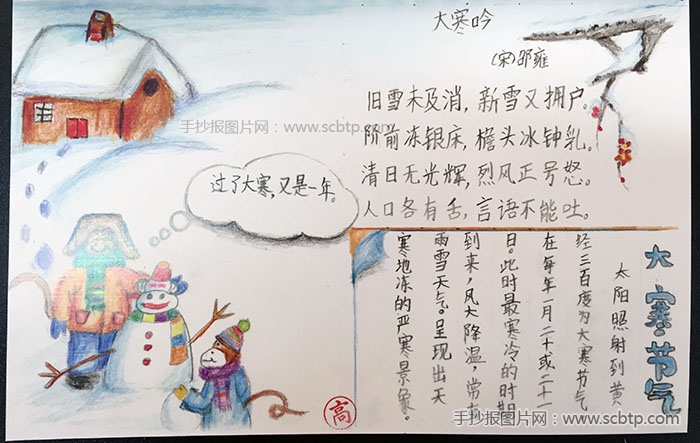 大寒吟
(宋)邵雍
旧雪未及消，新雪又拥户。
阶前冻银床，檐头冰钟乳。
清日无光辉，烈风正号怒。
人口各有舌，言语不能吐。
手抄报图片网：www.scbtp.com
过了大寒，又是一年。
大寒节气
太阳照射到黄
经三百度为大寒节气
在每年一月二十或二十一
日。此时最寒冷的时期
到来，风大降温，常有
雨雪天气。呈现出天
寒地冻的严寒景象。
高
手抄报图片网：www.scbtp.com